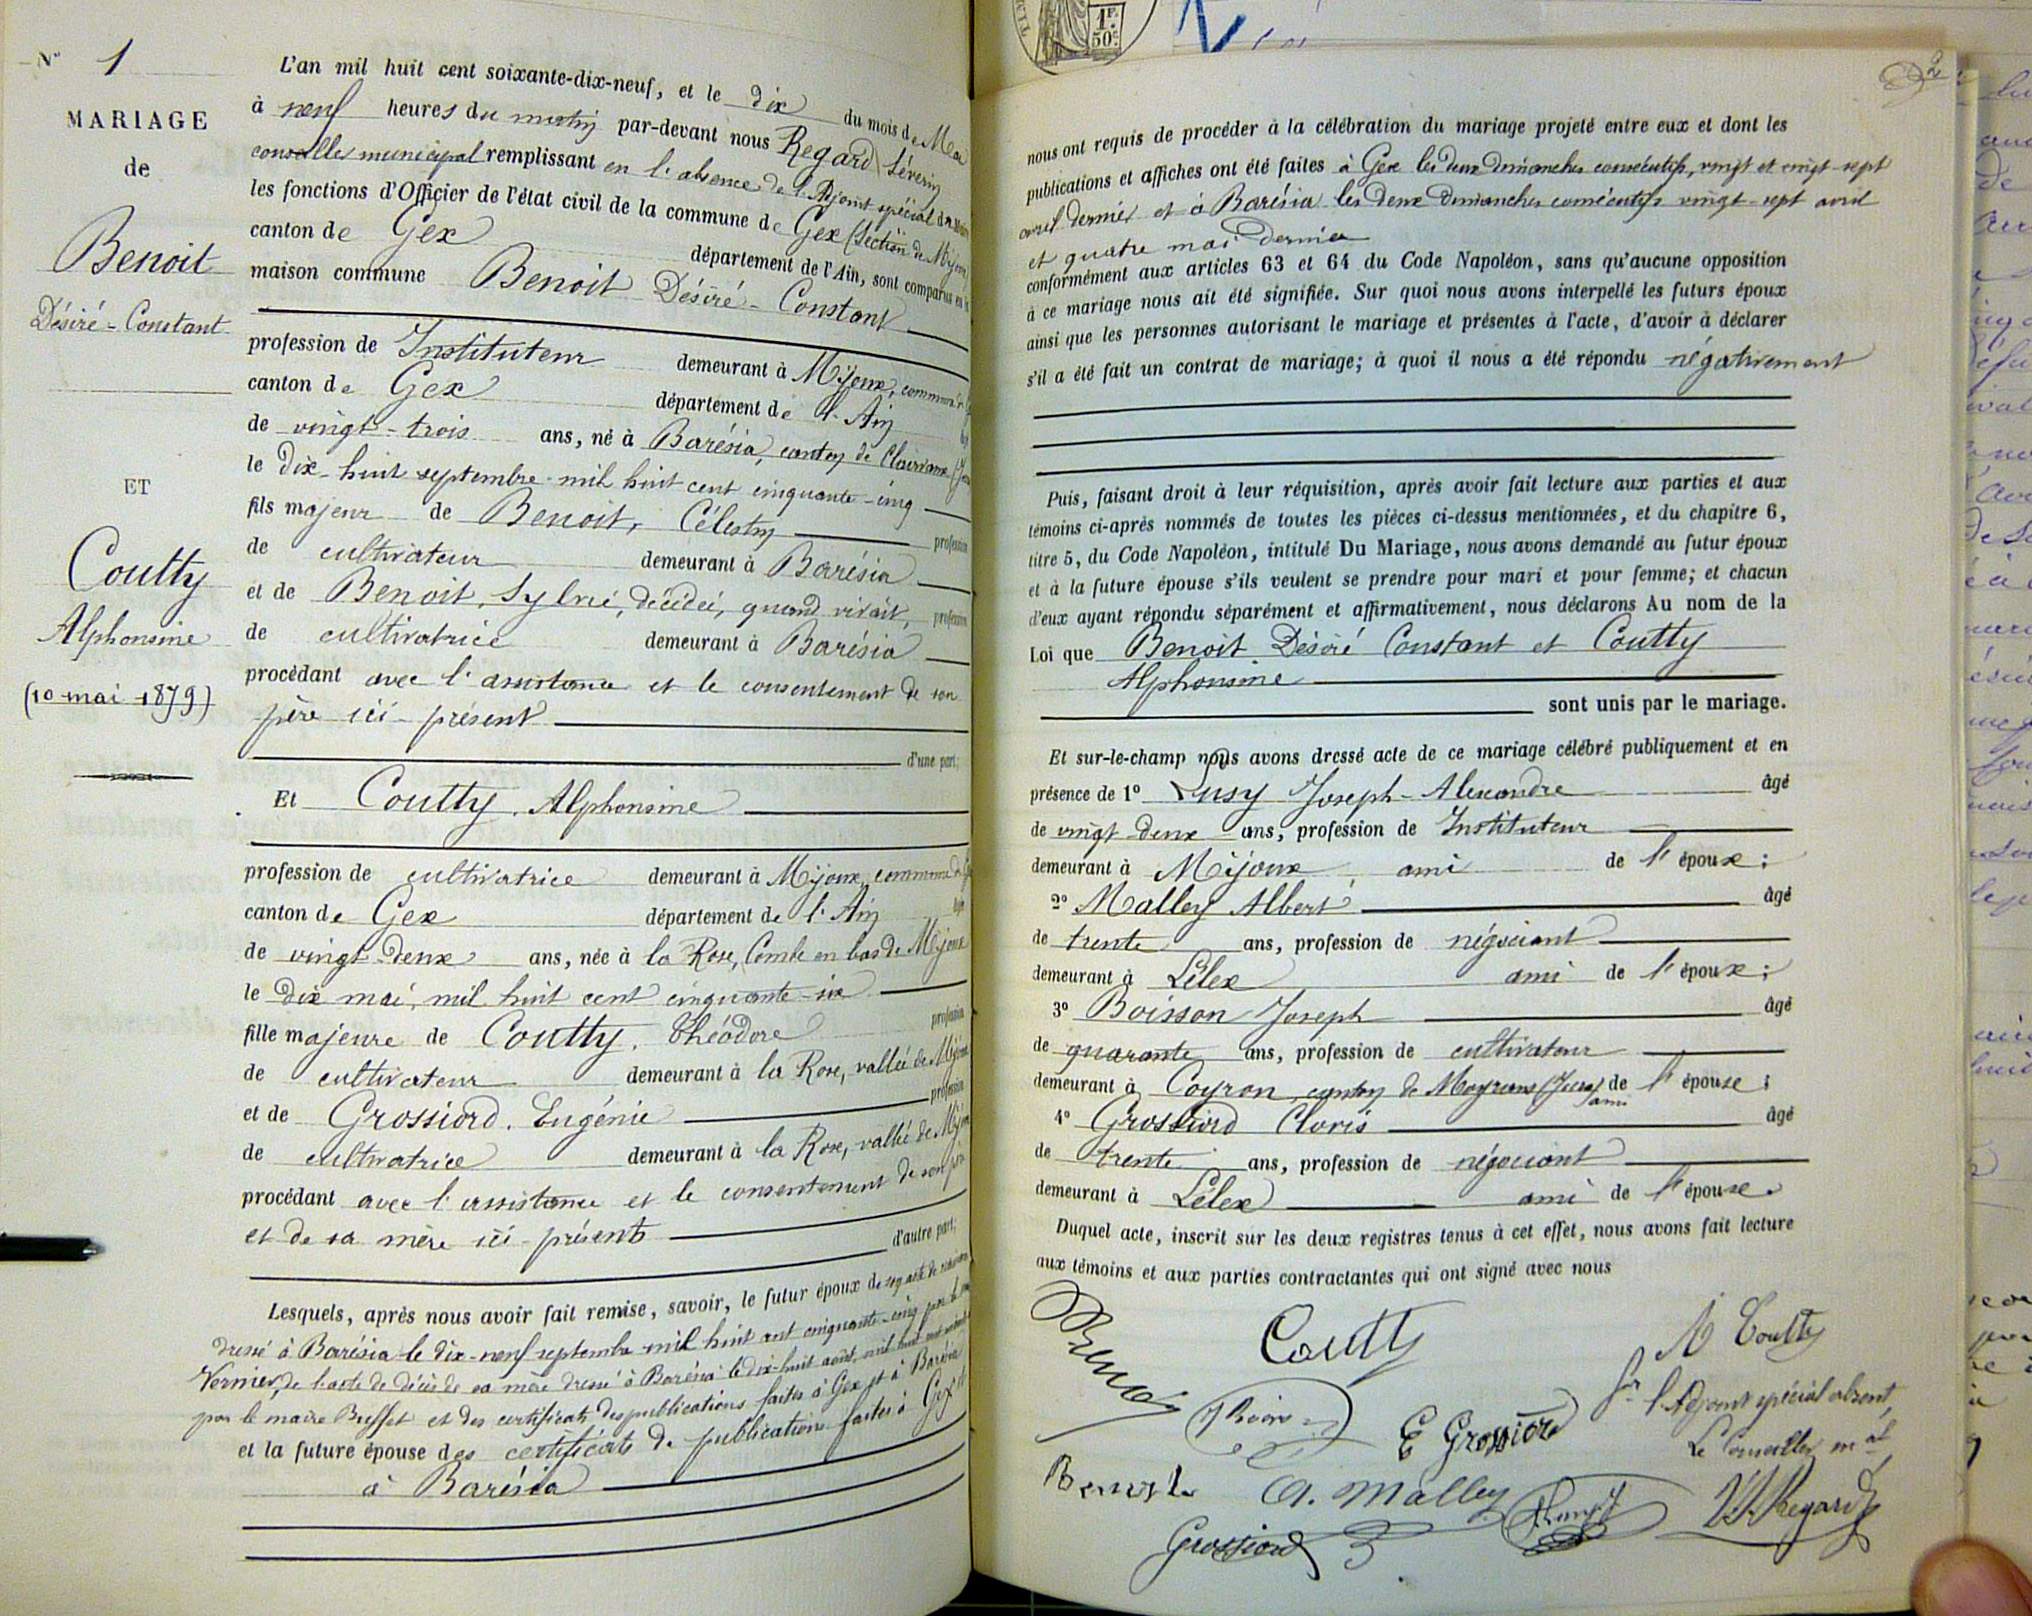 N° 1
MARIAGE
de
Benoit
Désiré-Constant
ET
Coutty
Alphonsine
(10 mai 1879)
L'an mil huit cent soixante-dix-neuf, et le dix du mois de Mai
à neuf heures du matin par-devant nous Regard Séverin
conseiller municipal remplissant en l'absence de l'Adjoint spécial
les fonctions d'Officier de l'état civil de la commune de Gex (Section de Mijoux)
canton de Gex département de l'Ain, sont comparus en la
maison commune Benoit Désiré-Constant
profession de Instituteur demeurant à Mijoux, commune de
canton de Gex département de l'Ain
de vingt-trois ans, né à Barésia, canton de Clairvaux
le dix-huit septembre mil huit cent cinquante-cinq
fils majeur de Benoit, Célestin profession
de cultivateur demeurant à Barésia
et de Benoit, Sylvie, décédée, quand vivait, profession
de cultivatrice demeurant à Barésia
procédant avec l'assistance et le consentement de son
père ici-présent
d'une part;
Et Coutty, Alphonsine
profession de cultivatrice demeurant à Mijoux, commune de
canton de Gex département de l'Ain
de vingt-deux ans, née à la Rose, Combe en bas de Mijoux
le dix mai, mil huit cent cinquante-six
fille majeure de Coutty, Théodore profession
de cultivateur demeurant à la Rose, vallée de Mijoux
et de Grossiord, Eugénie profession
de cultivatrice demeurant à la Rose, vallée de Mijoux
procédant avec l'assistance et le consentement de son père
et de sa mère ici-présents
d'autre part;
Lesquels, après nous avoir fait remise, savoir, le futur époux de son acte de
dressé à Barésia le dix-neuf septembre mil huit cent cinquante-cinq par le
Vernier, de l'acte de décès de sa mère dressé à Barésia le dix-huit août mil huit cent
par le maire Buffet et des certificats des publications faites à Gex et à Barésia
et la future épouse des certificats de publications faites à Gex et
à Barésia
1F.
50c.
2
nous ont requis de procéder à la célébration du mariage projeté entre eux et dont les
publications et affiches ont été faites à Gex les deux dimanches consécutifs, vingt et vingt-sept
avril dernier et à Barésia les deux dimanches consécutifs vingt-sept avril
et quatre mai dernier
conformément aux articles 63 et 64 du Code Napoléon, sans qu'aucune opposition
à ce mariage nous ait été signifiée. Sur quoi nous avons interpellé les futurs époux
ainsi que les personnes autorisant le mariage et présentes à l'acte, d'avoir à déclarer
s'il a été fait un contrat de mariage; à quoi il nous a été répondu négativement
Puis, faisant droit à leur réquisition, après avoir fait lecture aux parties et aux
témoins ci-après nommés de toutes les pièces ci-dessus mentionnées, et du chapitre 6,
titre 5, du Code Napoléon, intitulé Du Mariage, nous avons demandé au futur époux
et à la future épouse s'ils veulent se prendre pour mari et pour femme; et chacun
d'eux ayant répondu séparément et affirmativement, nous déclarons Au nom de la
Loi que Benoit Désiré Constant et Coutty
Alphonsine
sont unis par le mariage.
Et sur-le-champ nous avons dressé acte de ce mariage célébré publiquement et en
présence de 1° Lusy Joseph-Alexandre âgé
de vingt-deux ans, profession de Instituteur
demeurant à Mijoux ami de l'époux;
2° Malley Albert âgé
de trente ans, profession de négociant
demeurant à Lélex ami de l'époux;
3° Boisson Joseph âgé
de quarante ans, profession de cultivateur
demeurant à Coyron, canton de Moyrans (Jura) ami de l'épouse;
4° Grossiord Clovis âgé
de trente ans, profession de négociant
demeurant à Lélex ami de l'épouse.
Duquel acte, inscrit sur les deux registres tenus à cet effet, nous avons fait lecture
aux témoins et aux parties contractantes qui ont signé avec nous
Benoit Coutty A Coutty
E Grossiord
Pr l'Adjoint spécial absent,
Le Conseiller mal,
Benoit A. Malley Regard
Grossiord